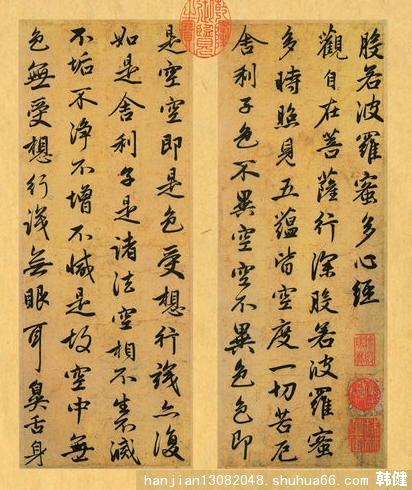 般若波羅蜜多心經
觀自在菩薩行深般若波羅蜜
多時照見五蘊皆空度一切苦厄
舍利子色不異空空不異色色即
是空空即是色受想行識亦復
如是舍利子是諸法空相不生不滅
不垢不淨不增不減是故空中無
色無受想行識無眼耳鼻舌身
hanjian13082048.shuhua66.com 韩健